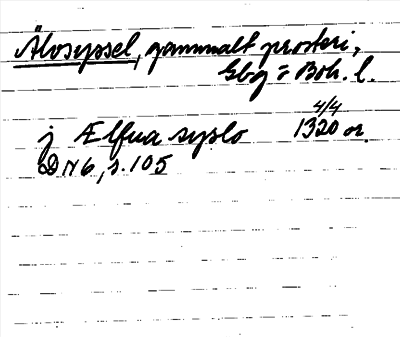 Älvsyssel, gammalt prosteri,
Gbg o Boh. l.
j Ælfua syslo 4/4 1320 or.
DN 6, s. 105